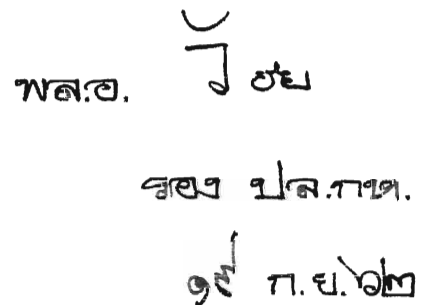 พล.อ. วิชัย
รอง ปล.กห.
๑๙ ก.ย. ๖๒